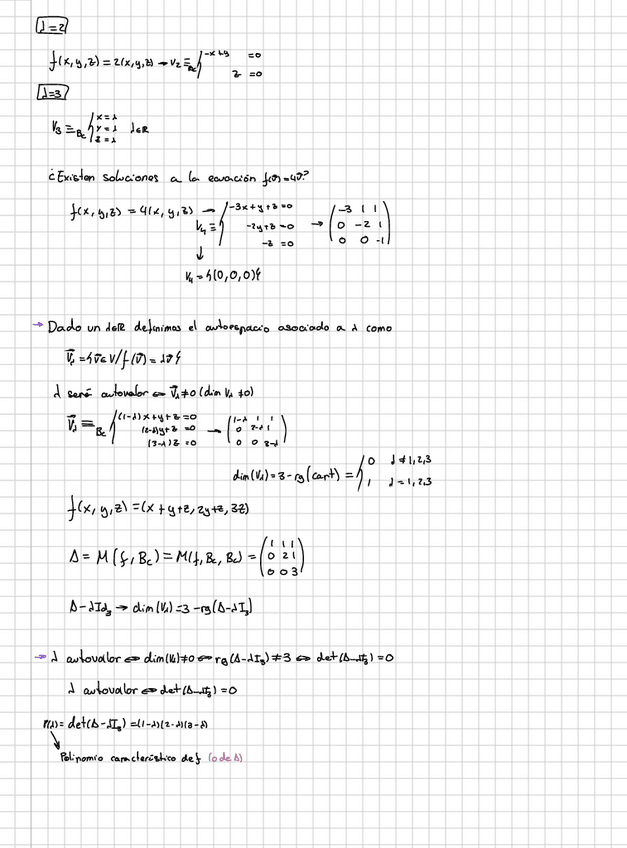 λ=2
f(x,y,z) = 2(x,y,z) → V₂ ≡Bc { -x+y =0
z =0
λ=3
V₃ ≡Bc { x=λ
y=λ λ∈ℝ
z=λ
¿Existen soluciones a la ecuación f(v⃗)=4v⃗?
f(x,y,z) = 4(x,y,z) → V₄ ≡ { -3x+y+z=0
-2y+z=0 → ( -3 1 1 / 0 -2 1 / 0 0 -1 )
-z =0
↓
V₄ = {(0,0,0)}
→ Dado un λ∈ℝ definimos el autoespacio asociado a λ como
V⃗λ = {v⃗∈V / f(v⃗) = λv⃗}
λ será autovalor ⇔ V⃗λ≠0 (dim Vλ ≠0)
V⃗λ ≡Bc { (1-λ)x+y+z=0
(2-λ)y+z =0 → ( 1-λ 1 1 / 0 2-λ 1 / 0 0 3-λ )
(3-λ)z =0
dim(Vλ) = 3-rg(cart) = { 0 λ≠1,2,3
1 λ=1,2,3
f(x,y,z) = (x+y+z, 2y+z, 3z)
Δ = M(f,Bc) = M(f,Bc,Bc) = ( 1 1 1 / 0 2 1 / 0 0 3 )
Δ-λId₃ → dim(Vλ) = 3-rg(Δ-λI₃)
→ λ autovalor ⇔ dim(Vλ)≠0 ⇔ rg(Δ-λI₃)≠3 ⇔ det(Δ-λI₃)=0
λ autovalor ⇔ det(Δ-λI₃)=0
P(λ)= det(Δ-λI₃) = (1-λ)(2-λ)(3-λ)
Polinomio característico de f (o de Δ)